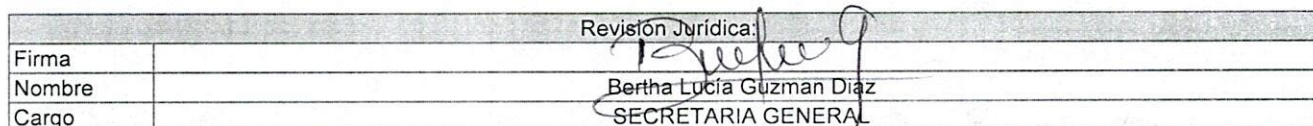 Revisión Jurídica:
Firma
Nombre Bertha Lucía Guzman Diaz
Cargo SECRETARIA GENERAL